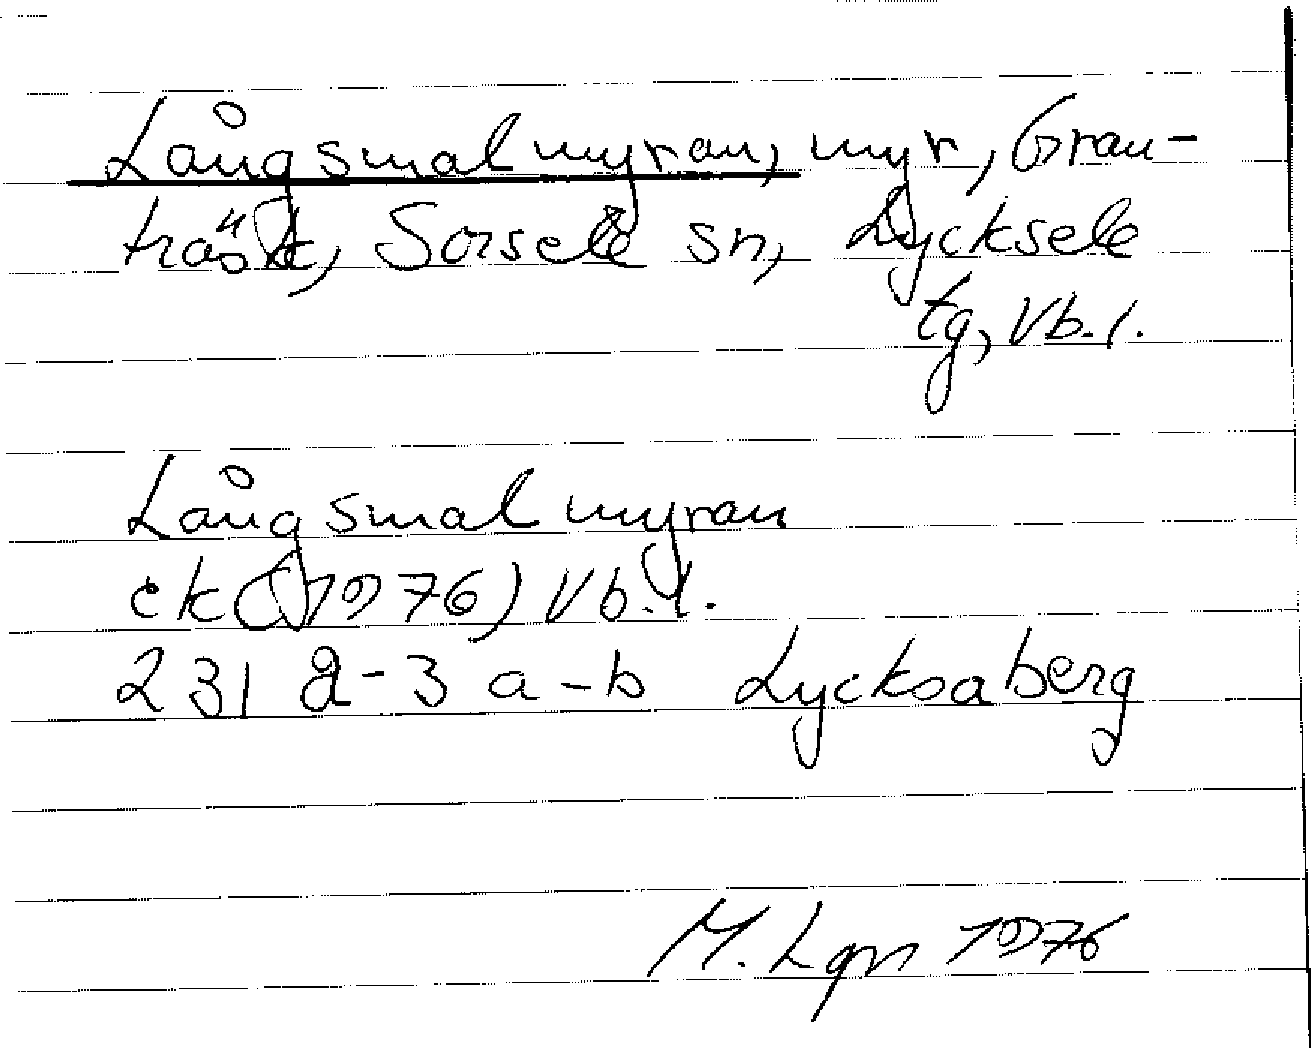 Långsmalmyran, myr, Gran-
träsk, Sorsele sn, Lycksele
tg, Vb. l.
Långsmalmyran
ek (1976) Vb. l.
231 2-3 a-b Lycksaberg
M. Lgn 1976